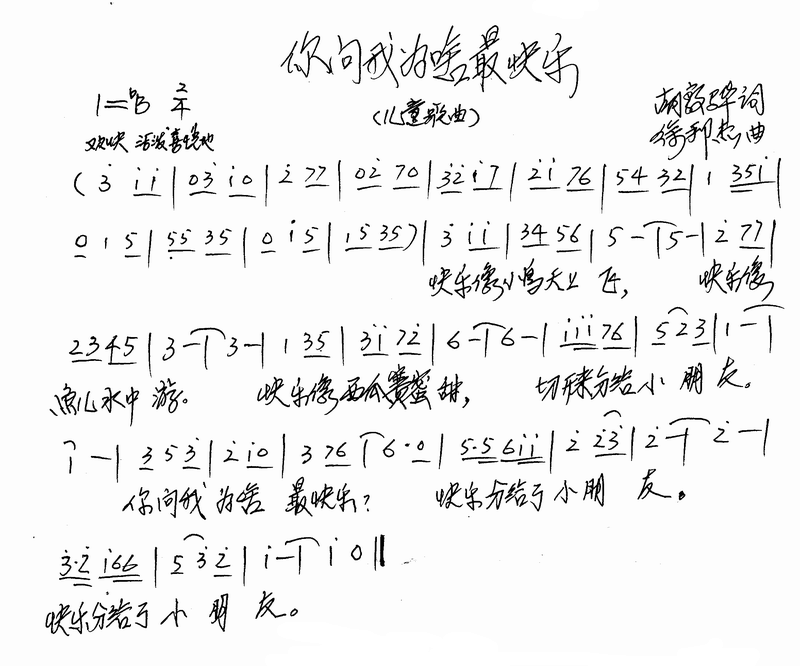 你问我为啥最快乐
1=♭B 2/4
(儿童歌曲)
词
欢快 活泼喜悦地
徐邦杰曲
( 3̇ i̇ i̇ | 0 3̇ i̇ 0 | 2̇ 7 7 | 0 2̇ 7 0 | 3̇ 2̇ i̇ 7 | 2̇ i̇ 7 6 | 5 4 3 2 | 1 3 5 i̇ |
0 1 5 | 5 5 3 5 | 0 i̇ 5 | 1 5 3 5 ) | 3̇ i̇ i̇ | 3 4 5 6 | 5 - | 5 - | 2̇ 7 7 |
快乐像小鸟天上 飞, 快乐像
2 3 4 5 | 3 - | 3 - | 1 3 5 | 3 i̇ 7 2̇ | 6 - | 6 - | i̇ i̇ i̇ 7 6 | 5 2̇ 3 | 1 - |
鱼儿水中 游。 快乐像西瓜赛蜜 甜, 切开来分给小 朋 友。
1 - | 3 5 3̇ | 2̇ i̇ 0 | 3 7 6 | 6 · 0 | 5 · 5 6 i̇ i̇ | 2̇ 2̇ 3̇ | 2̇ - | 2̇ - |
你问我 为啥 最快乐? 快乐分给了 小 朋 友。
3̇ · 2̇ i̇ 6 6 | 5 3̇ 2̇ | i̇ - | i̇ 0 ‖
快乐分给了 小 朋 友。